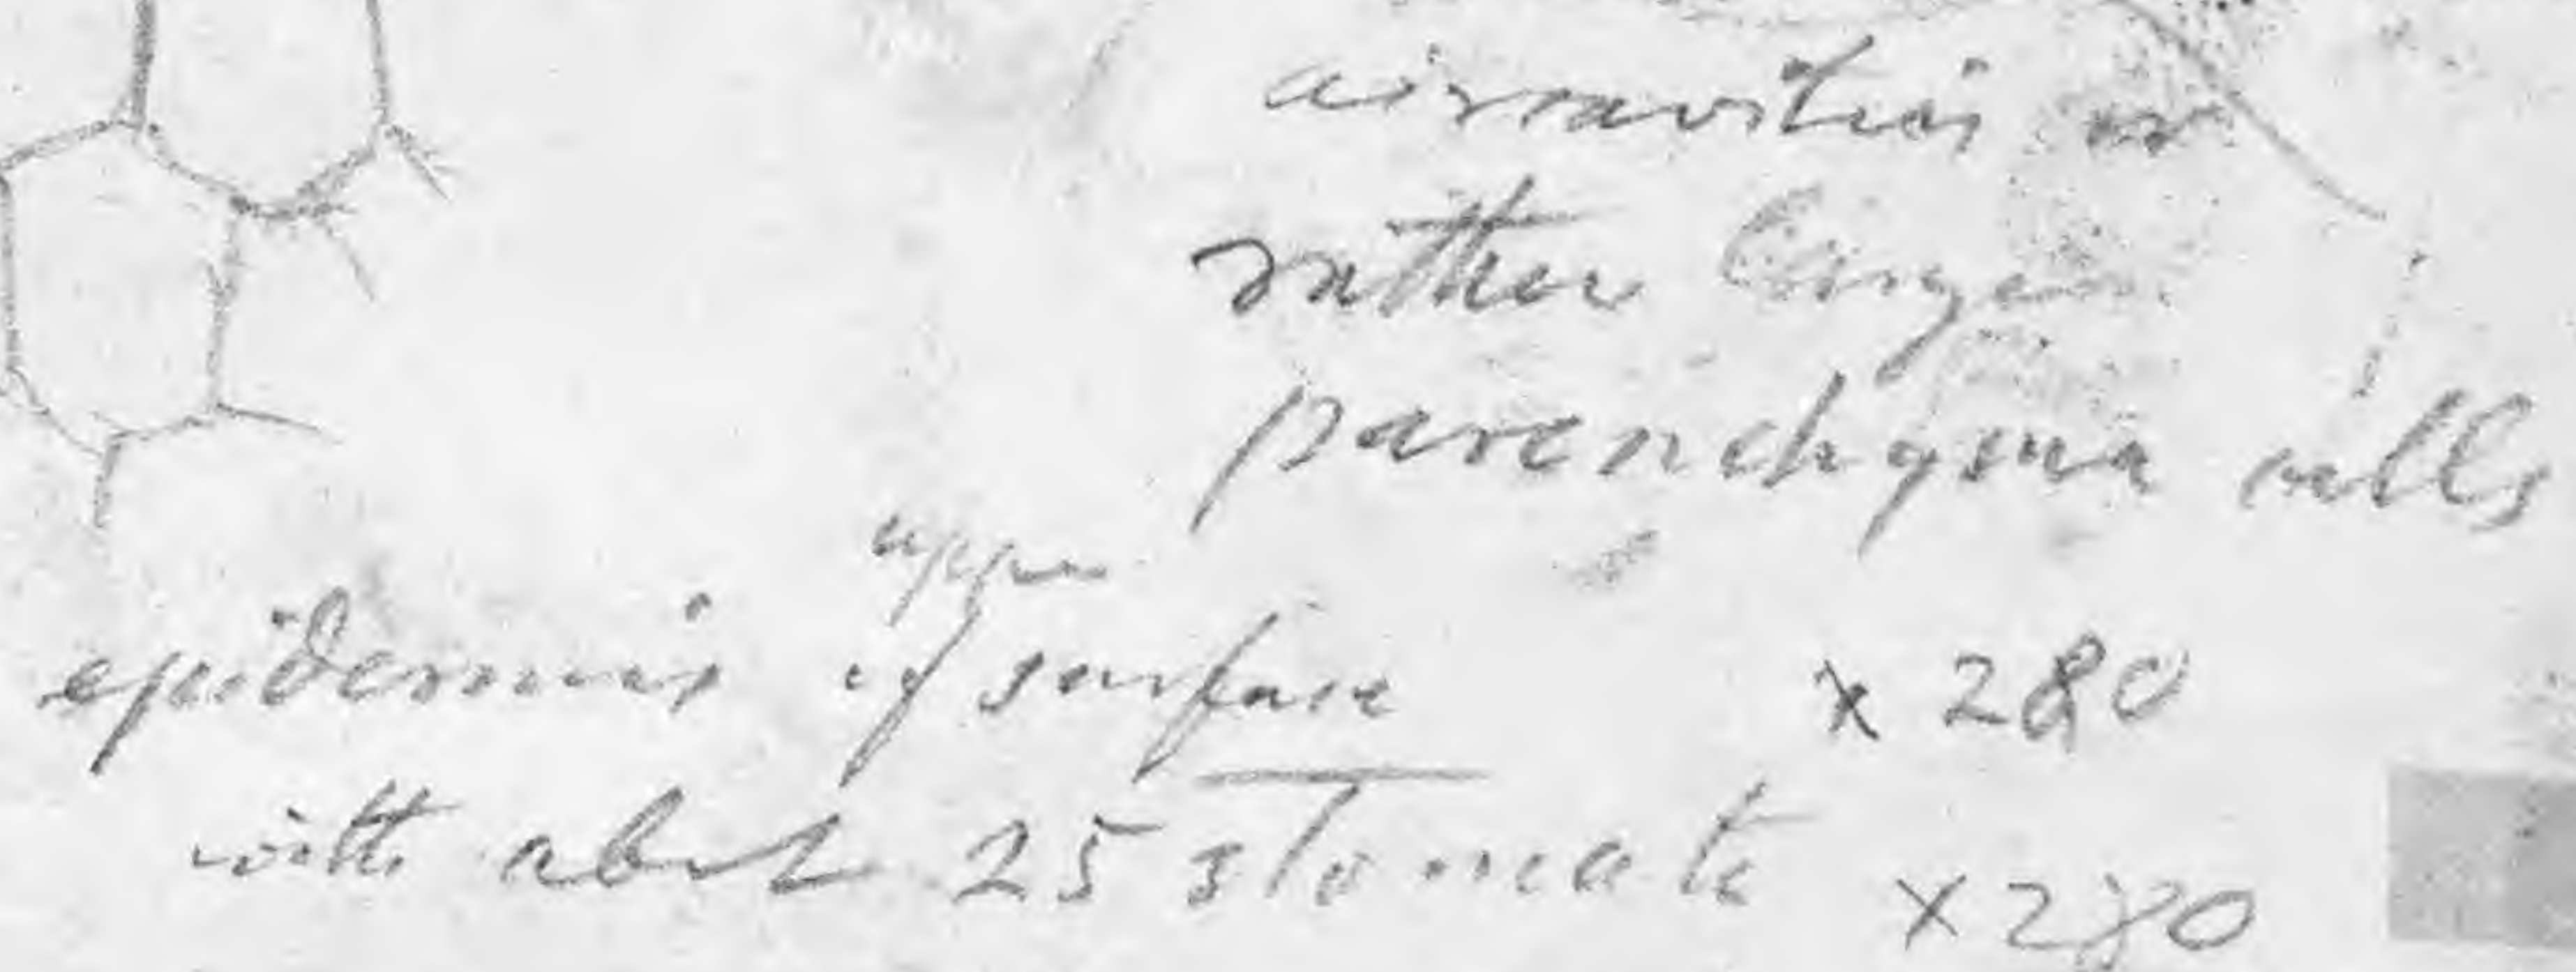 aircavities or
rather large
parenchyma cells
upper
epidermis of surface x 280
with about 25 stomata x 280